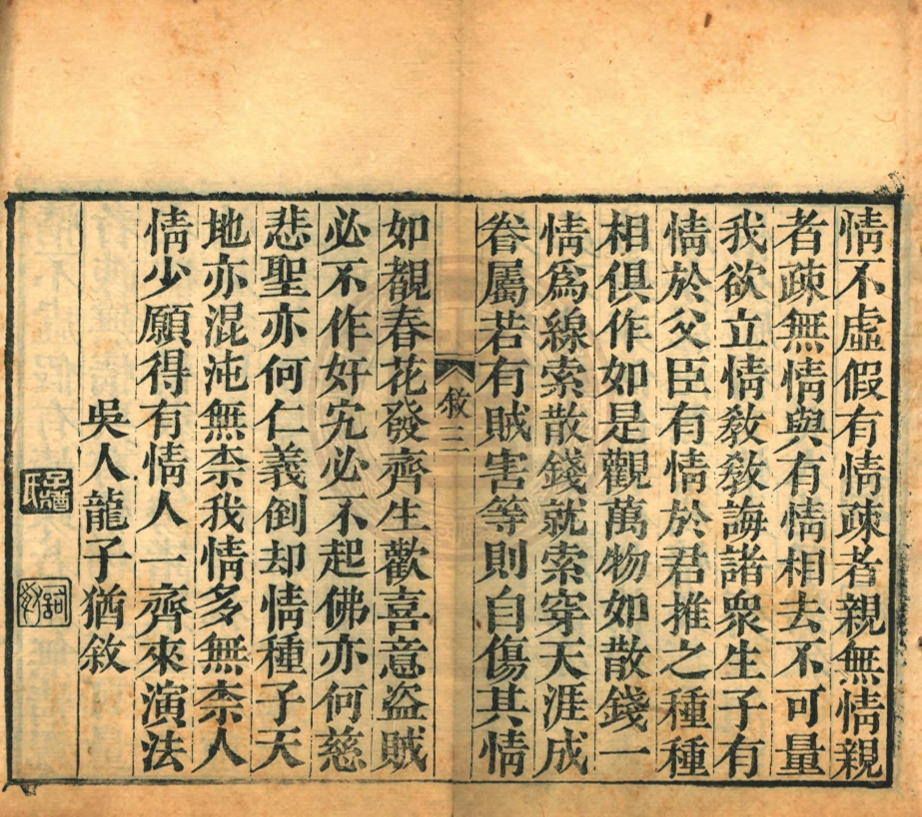 情不虛假有情疎者親無情親
者疎無情與有情相去不可量
我欲立情教教誨諸衆生子有
情於父臣有情於君推之種種
相俱作如是觀萬物如散錢一
情爲線索散錢就索穿天涯成
眷屬若有賊害等則自傷其情
敘三
如覩春花發齊生歡喜意盜賊
必不作奸宄必不起佛亦何慈
悲聖亦何仁義倒却情種子天
地亦混沌無柰我情多無柰人
情少願得有情人一齊來演法
吳人龍子猶敘